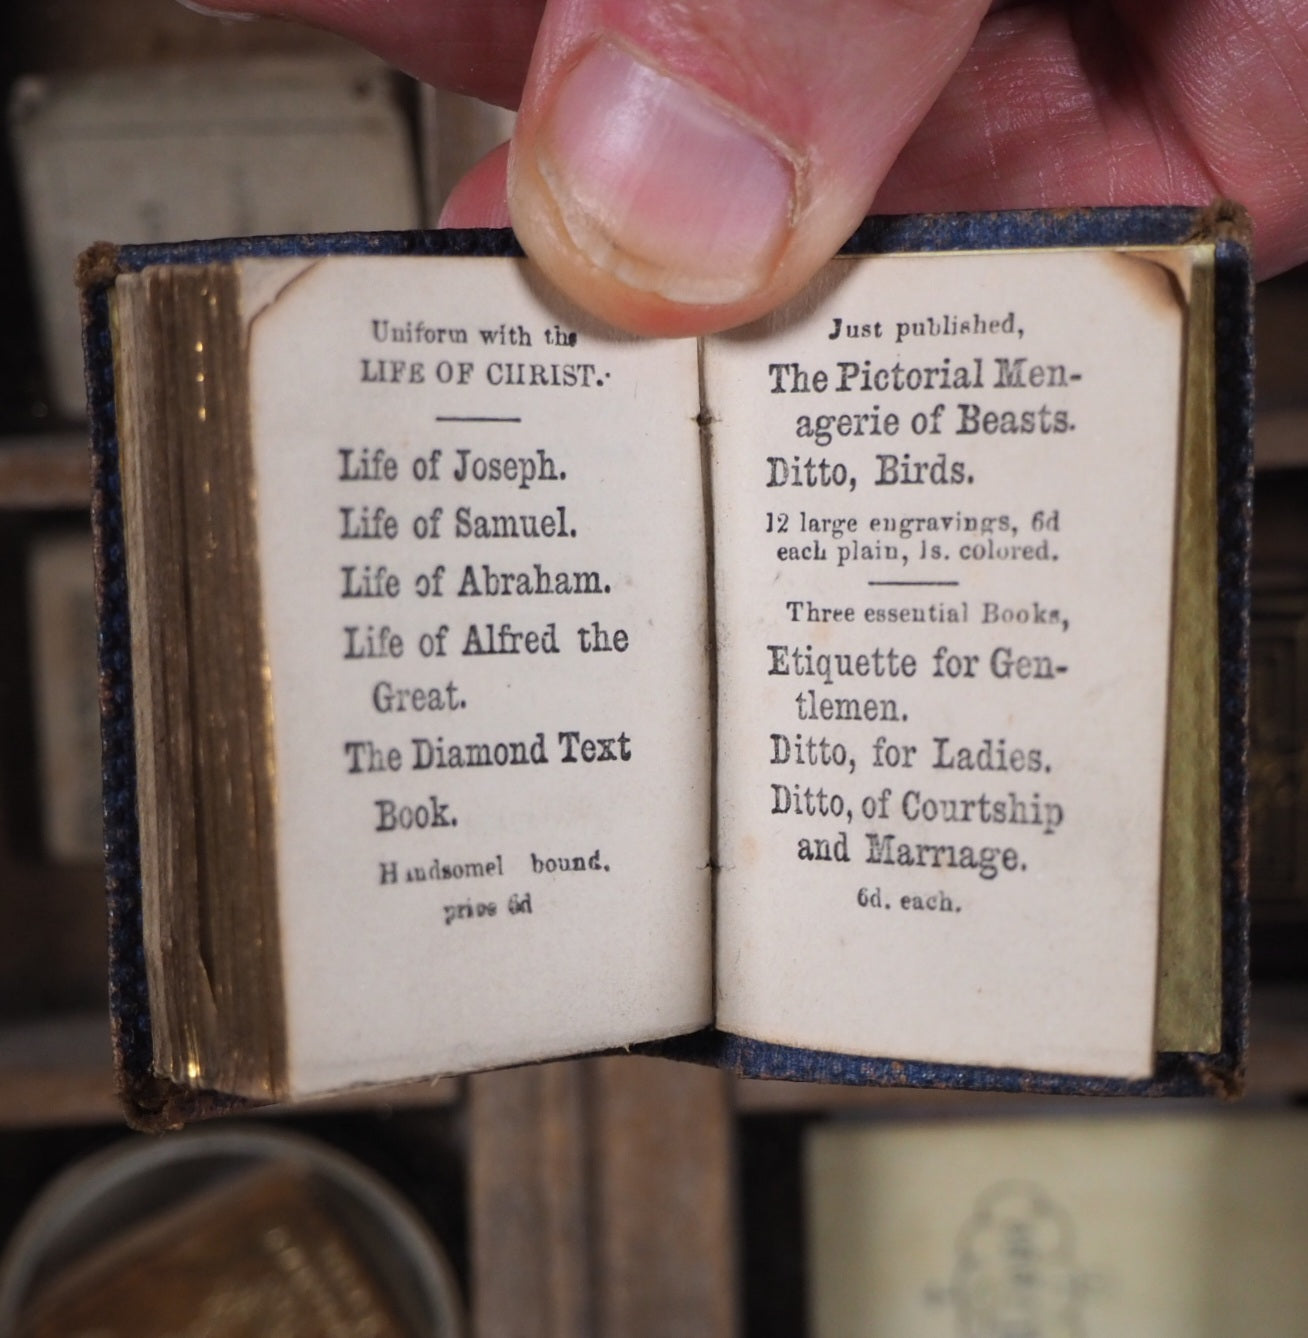 Uniform with the
LIFE OF CHRIST.
Life of Joseph.
Life of Samuel.
Life of Abraham.
Life of Alfred the
Great.
The Diamond Text
Book.
Handsomel bound.
price 6d
Just published,
The Pictorial Men-
agerie of Beasts.
Ditto, Birds.
12 large engravings, 6d
each plain, 1s. colored.
Three essential Books,
Etiquette for Gen-
tlemen.
Ditto, for Ladies.
Ditto, of Courtship
and Marriage.
6d. each.